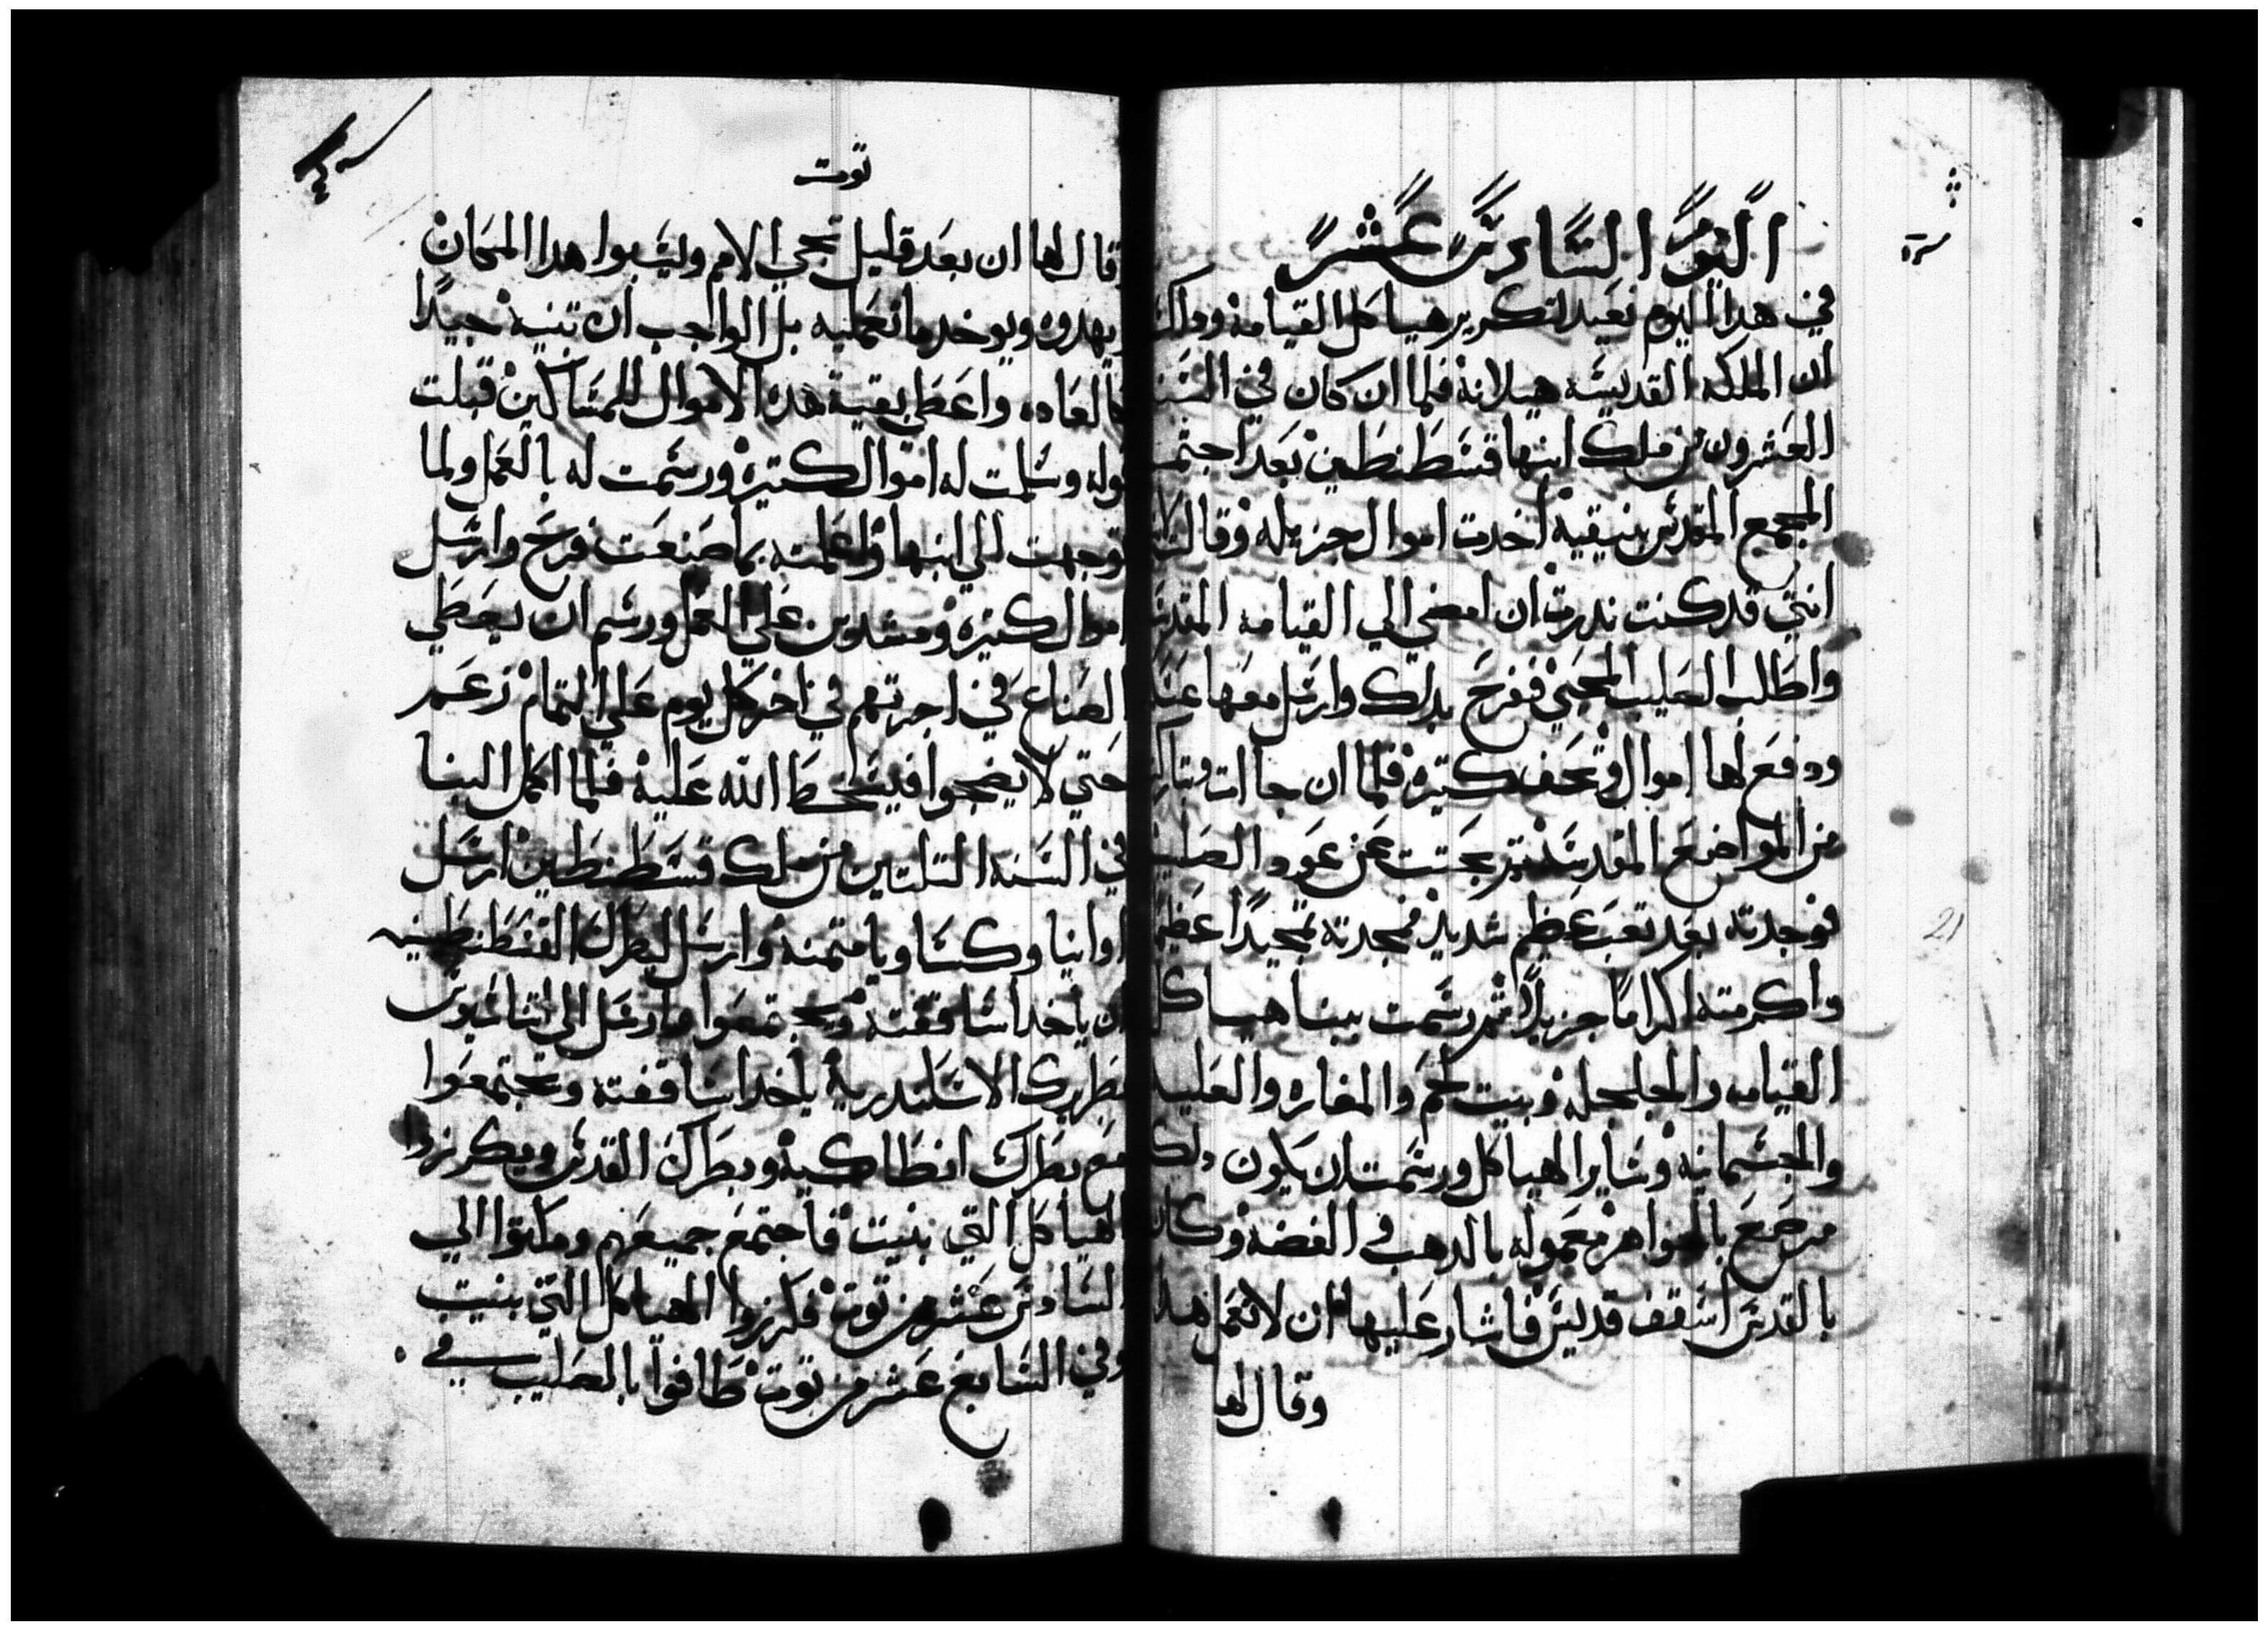 اليوم السادس عشر
في هدا اليوم نعيد لتكرير هياكل القيامه ودلك
ان الملكه القديسه هيلانه فلما ان كان في السنه
العشرون من ملك ابنها قسطنطين بعد اجتماع
المجمع المقدس بنيقيه اخدت اموال جزيله وقالت لابنها
انني قد كنت ندرت ان امضي الي القيامه المقدسه
واطلب الصليب المحيي ففرح بدلك وارسل معها عسكر
ودفع لها اموال وتحف كتيره فلما ان جاات وتباركت
من المواضع المقدسه بحتت عن عود الصليب
فوجدته بعد تعب عظيم شديد فمجدته تمجيدًا عظيما
واكرمته اكرامًا جزيلًا ثم رسمت ببنا هياكل
القيامه والجلجله وبيت لحم والمغاره والعليه
والجسمانيه وساير الهياكل ورسمت ان يكون دلك
مرصع بالجواهر معموله بالدهب والفضه وكان
بالقدس اسقف قديس فاشار عليها ان لا تعمل هدا
وقال لها
توت
قال لها ان بعد قليل تجي الامم وليسبوا هدا المكان
ويهدوه ويوخد ما تعمليه بل الواجب ان تبنيه جيدًا
كالعاده واعطي بقية هده الاموال للمساكين قبلت
قوله وسلمت له اموال كتيره ورسمت له بالعمل ولما
توجهت الي ابنها واعلمته بما صنعت فرح وارسل
اموال كتيره ومشدين علي العمل ورسم ان يعطي
الصناع في اجرتهم في اخر كل يوم علي التمام زعم
حتي لا يضجوا فيسخط الله عليه فلما اكمل البنا
في السنه التلتين من ملك قسطنطين ارسل
اوانيا وكساويا متمنه وارسل لبطرك القسطنطينيه
ان ياخد اساقفته ويجتمعوا وارسل الي اتناسيوس
بطريرك الاسكندريه ياخد اساقفته ويجتمعوا
مع بطرك انطاكيه وبطرك القدس ويكرزوا
الهياكل التي بنيت فاجتمع جميعهم ومكتوا الي
السادس عشر من توت فكرزوا الهياكل التي بنيت
وفي السابع عشر من توت طافوا بالصليب في
21